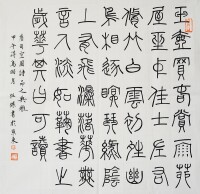 玉壺買春賞雨茆
屋坐中佳士左右
脩竹白雲初晴幽
鳥相逐眠琴綠陰
上有飛瀑落花無
言人澹如菊書之
歲華其曰可讀
司空圖詩品之典雅
甲午